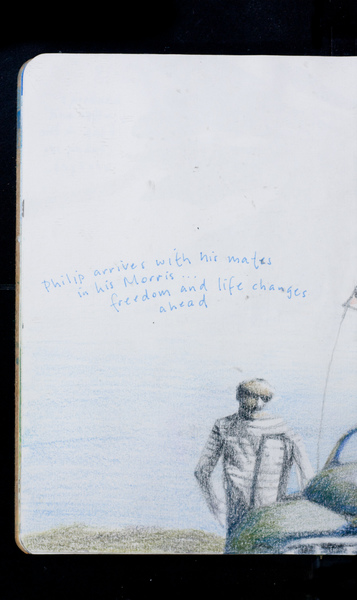 Philip arrives with his mates
in his Morris ...
freedom and life changes
ahead